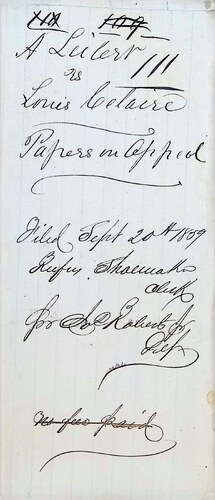 XIX 109
A Leibert 111
vs
Louis Celaire
Papers on Appeal
Filed Sept 20th 1859
Rufus Shoemaker
Clerk
for Jo Roberts Jr
Dep
no fee paid